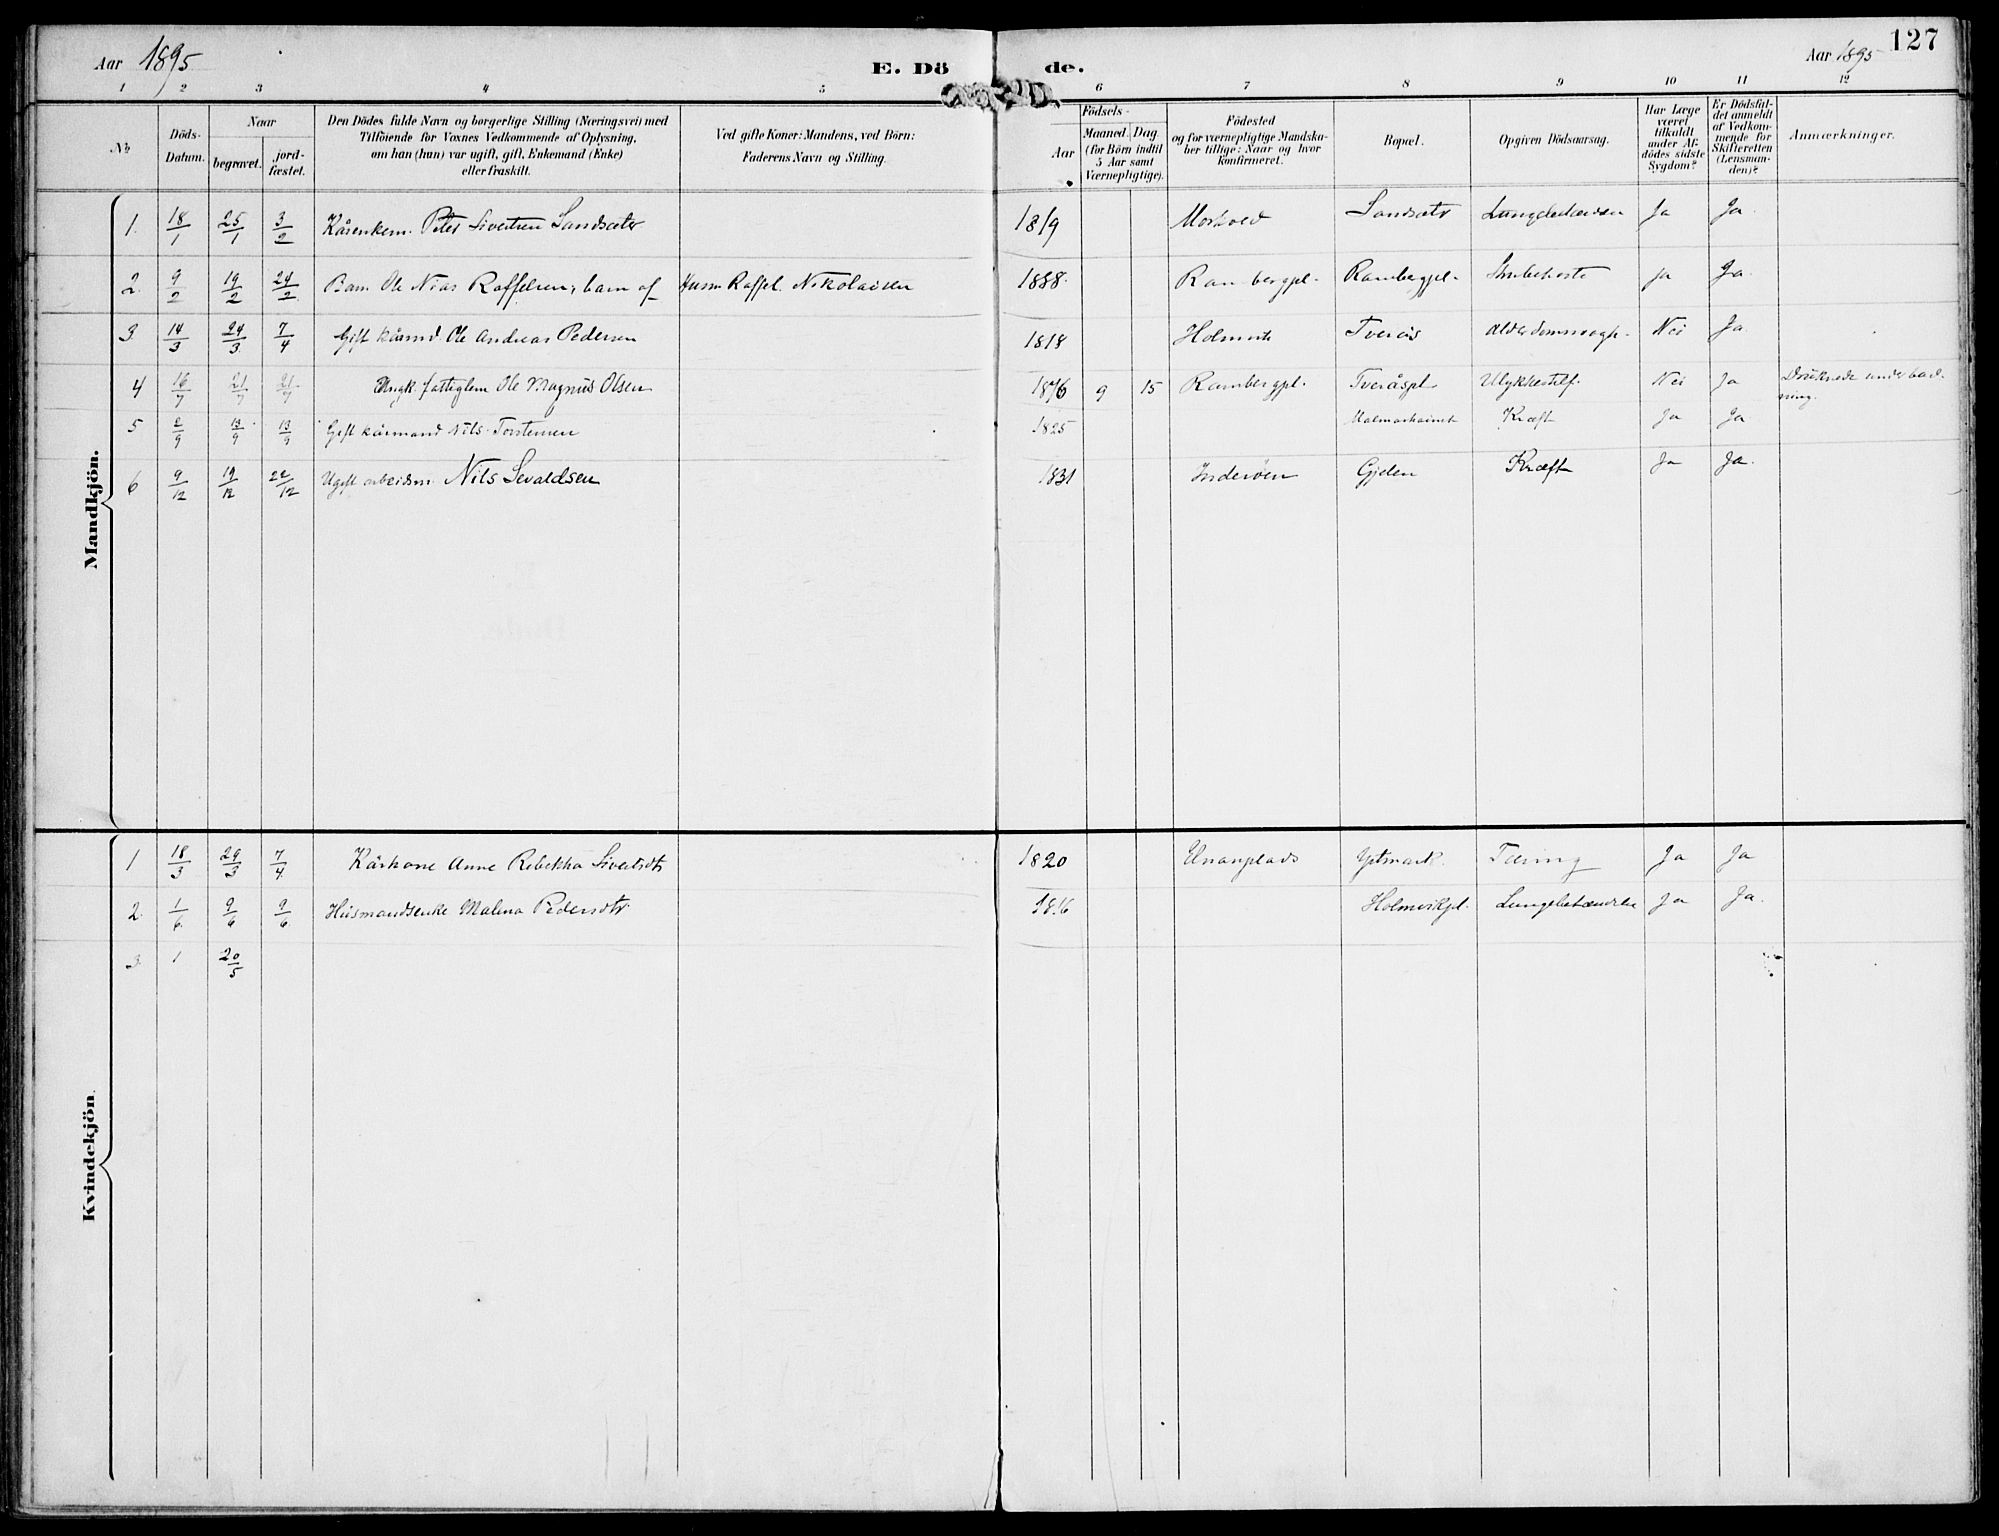 127
Aar 1895
E. Dö de.
Aar 1895
1 2 3 4 5 6 7 8 9 10 11 12
No.
Döds-Datum.
Naar
begravet.
jord-fæstet.
Den Dödes fulde Navn og borgerlige Stilling (Næringsvei) med
Tilföiende for Voxnes Vedkommende af Oplysning,
om han (hun) var ugift, gift, Enkemand (Enke)
eller fraskilt.
Ved gifte Koner: Mandens, ved Börn:
Faderens Navn og Stilling.
Födsels-
Aar
Maaned. Dag.
(for Börn indtil
5 Aar samt
Værnepligtige).
Födested
og for værnepligtige Mandska-
ber tillige: Naar og hvor
konfirmeret.
Bopæl.
Opgiven Dödsaarsag.
Har Læge
været
tilkaldt
under Af-
dödes sidste
Sygdom?
Er Dödsfal-
det anmeldt
af Vedkom-
mende for
Skifteretten
(Lensman-
den)?
Anmærkninger.
Mandkjön.
1. 18/1 25/1 3/2 Kårenkem. Peter Sivertsen Sandsæter 1819 Sandsætr Ja Ja.
2. 9/2 19/2 24/2 Barn Ole Nias Raffelsen, barn af Husm Raffel Nikolaisen 1888. Rambergpl. Rambergpl. Ja Ja.
3 14/3 24/3 7/4 Gift kårmd. Ole Andreas Pedersen 1818 Nei Ja.
4 16/7 21/7 21/7 Ungk. fattiglem Ole Magnus Olsen 1876 9 15 Rambergpl. Tveråspl Ulykkestilf. Nei Ja Druknede under bad-
ning.
5 2/9 13/9 13/9 Gift kårmand Nils Torstensen 1825 Kræft Ja Ja.
6 9/12 19/12 22/12 Ugift arbeidsm. Nils Sevaldsen 1831 Inderöen Gjelen Kræft Ja Ja.
Kvindekjön.
1 18/3 29/3 7/4 Kårkone Anne Rebekka Sivertsdtr 1820 Ytmark. Tæring Ja Ja
2. 1/6 9/6 9/6 Husmandsenke Malena Pedersdtr 1816 Holmvikpl. Lungebetændelse Ja Ja.
3 1 20/5